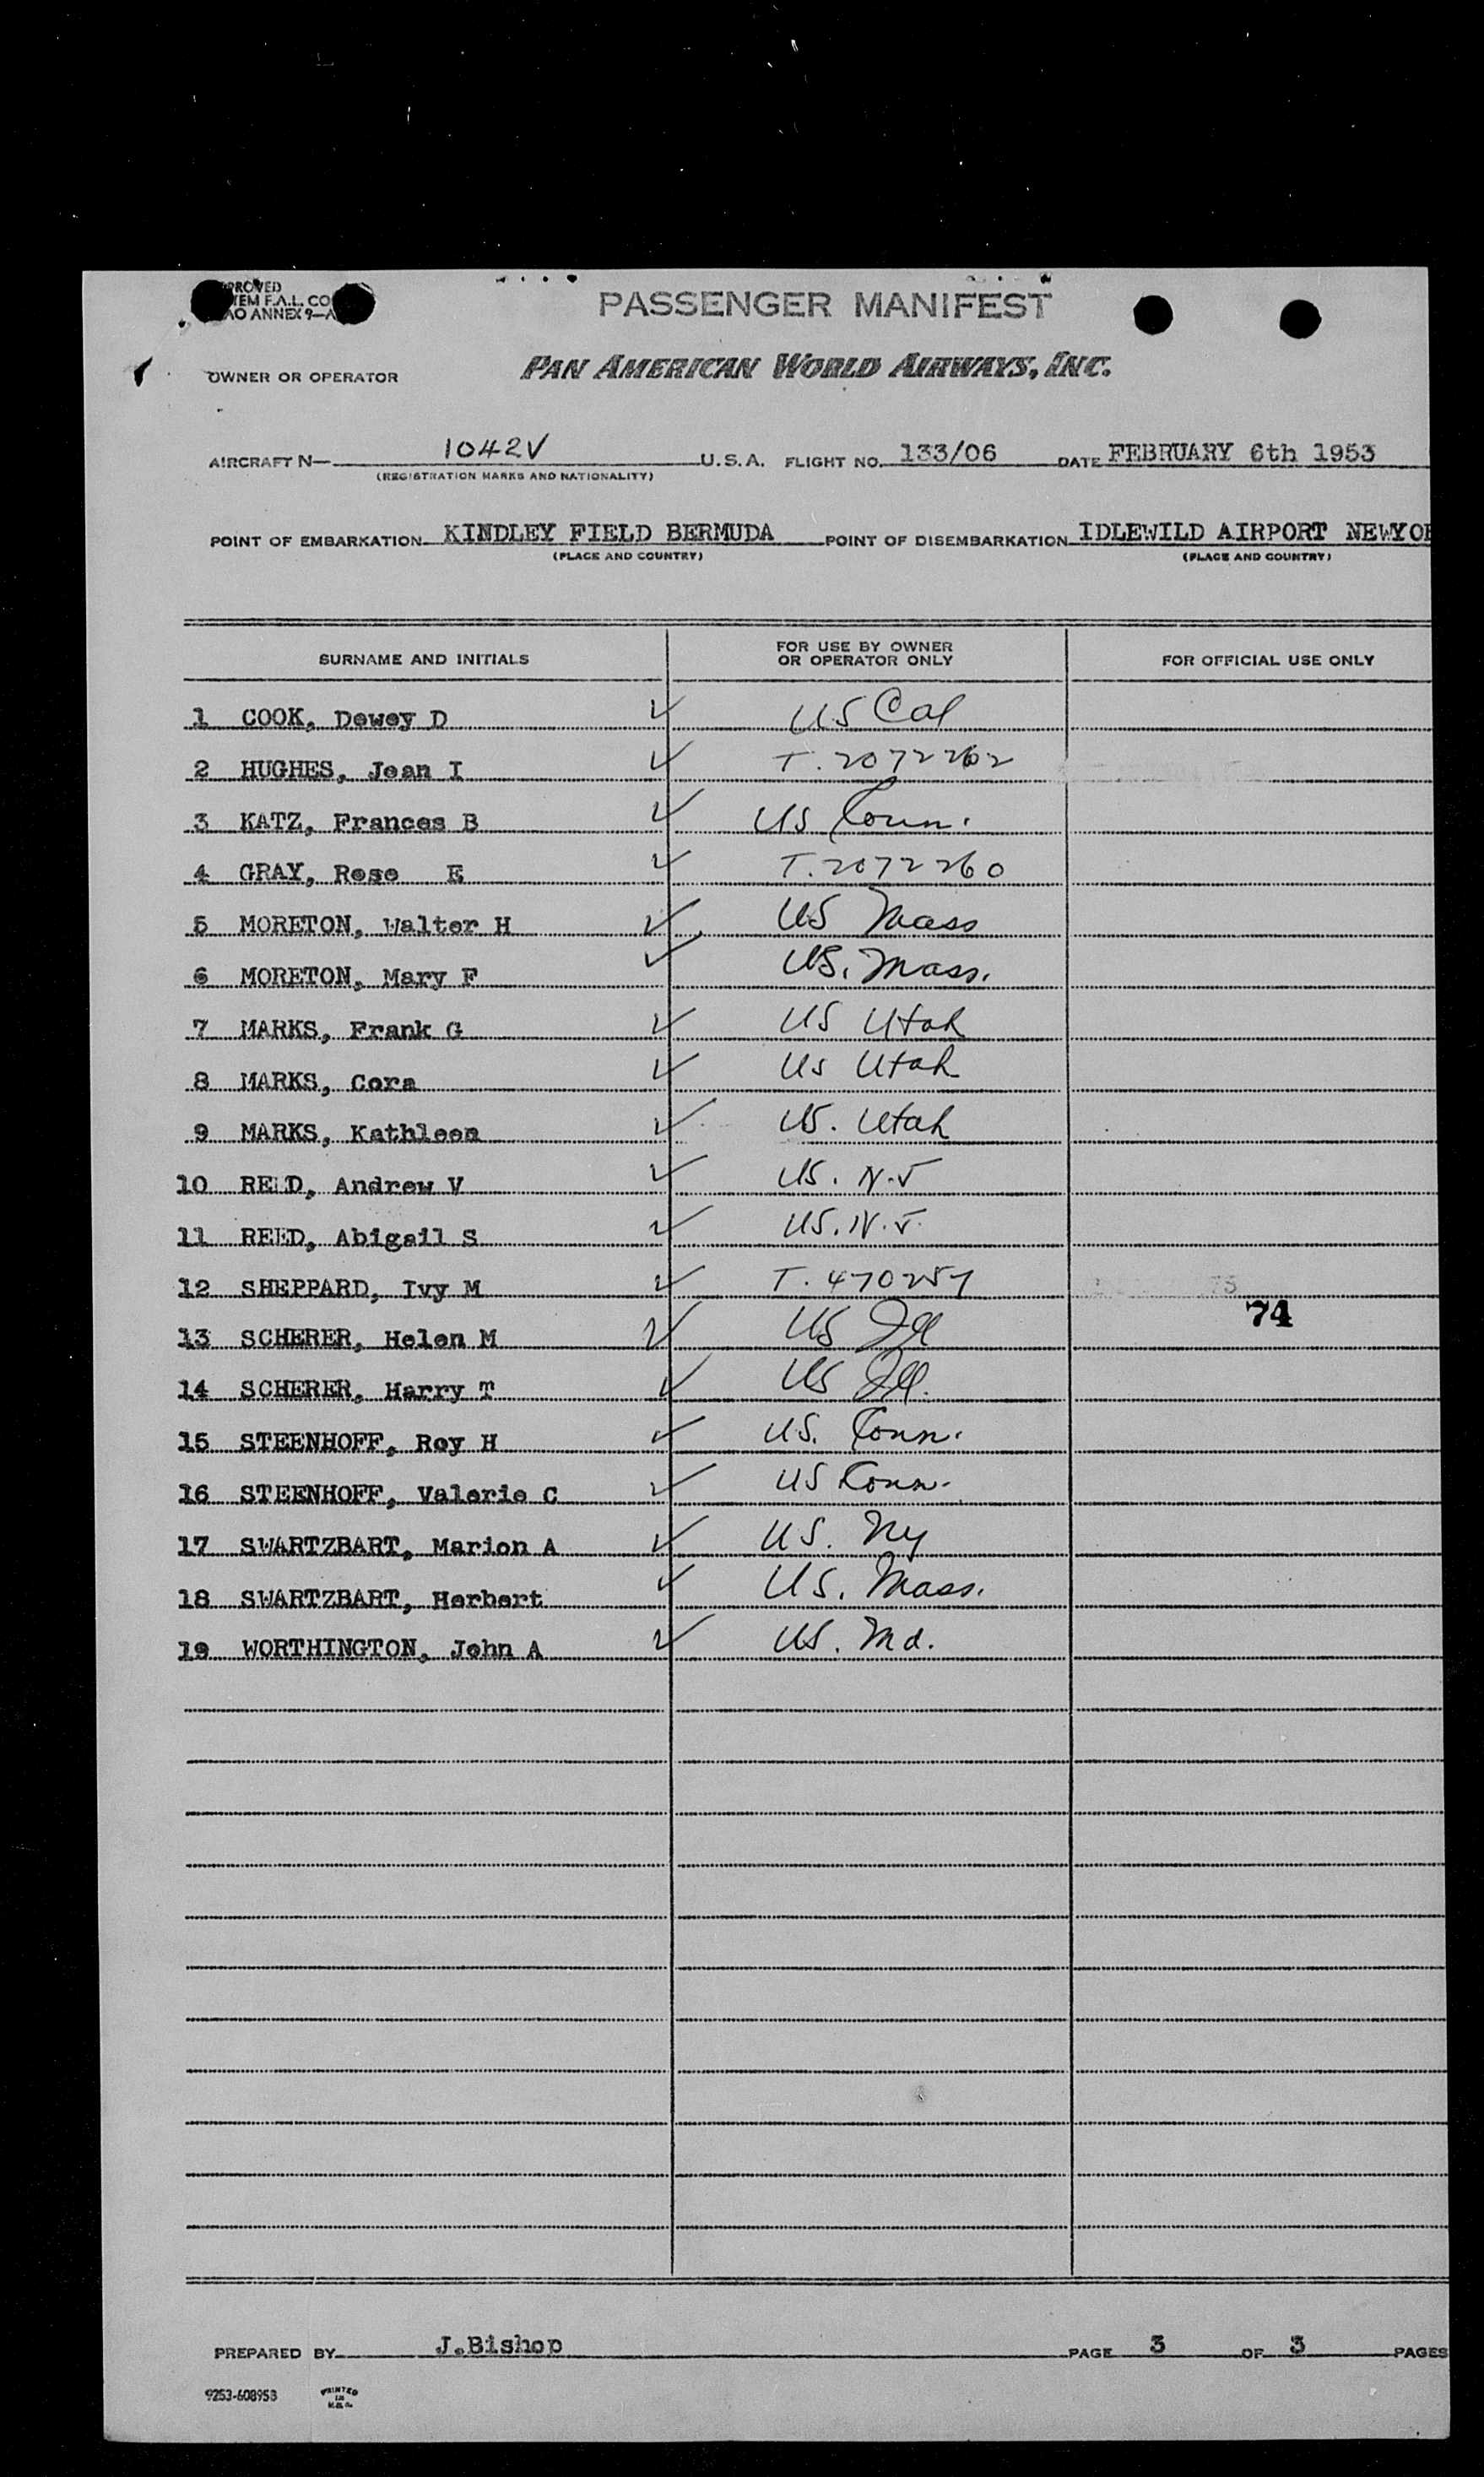 PROVED
TEM F.A.L. CO
AO ANNEX 9—A
PASSENGER MANIFEST
OWNER OR OPERATOR PAN AMERICAN WORLD AIRWAYS, INC.
AIRCRAFT N— 1042V U.S.A. FLIGHT NO. 133/06 DATE FEBRUARY 6th 1953
(REGISTRATION MARKS AND NATIONALITY)
POINT OF EMBARKATION KINDLEY FIELD BERMUDA POINT OF DISEMBARKATION IDLEWILD AIRPORT NEWYOR
(PLACE AND COUNTRY) (PLACE AND COUNTRY)
SURNAME AND INITIALS FOR USE BY OWNER OR OPERATOR ONLY FOR OFFICIAL USE ONLY
1 COOK, Dewey D US Cal
2 HUGHES, Jean I T. 2072262
3 KATZ, Frances B US Conn.
4 GRAY, Rose E T. 2072260
5 MORETON, Walter H US Mass
6 MORETON, Mary F US. Mass.
7 MARKS, Frank G US Utah
8 MARKS, Cora US Utah
9 MARKS, Kathleen US. Utah
10 REED, Andrew V US. N.J
11 REED, Abigail S US. N.J.
12 SHEPPARD, Ivy M T. 470257
74
13 SCHERER, Helen M US Ill
14 SCHERER, Harry T US Ill.
15 STEENHOFF, Roy H US. Conn.
16 STEENHOFF, Valerie C US Conn.
17 SWARTZBART, Marion A US. Ny
18 SWARTZBART, Herbert US. Mass.
19 WORTHINGTON, John A US. Md.
PREPARED BY J.Bishop PAGE 3 OF 3 PAGES
9253-608958 PRINTED IN U.S.A.